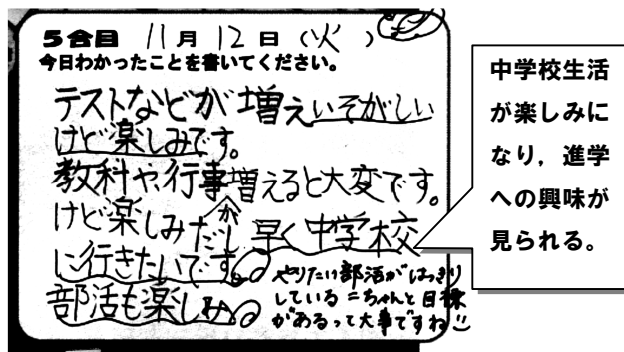 5合目 11月12日(火)
今日わかったことを書いてください。
テストなどが増えいそがしい
けど楽しみです。
教科や、行事が増えると大変です。
けど楽しみだし早く中学校
に行きたいです。
部活も楽しみ
やりたい部活がはっきり
している=ちゃんと目標
があるって大事ですね!!
中学校生活
が楽しみに
なり，進学
への興味が
見られる。